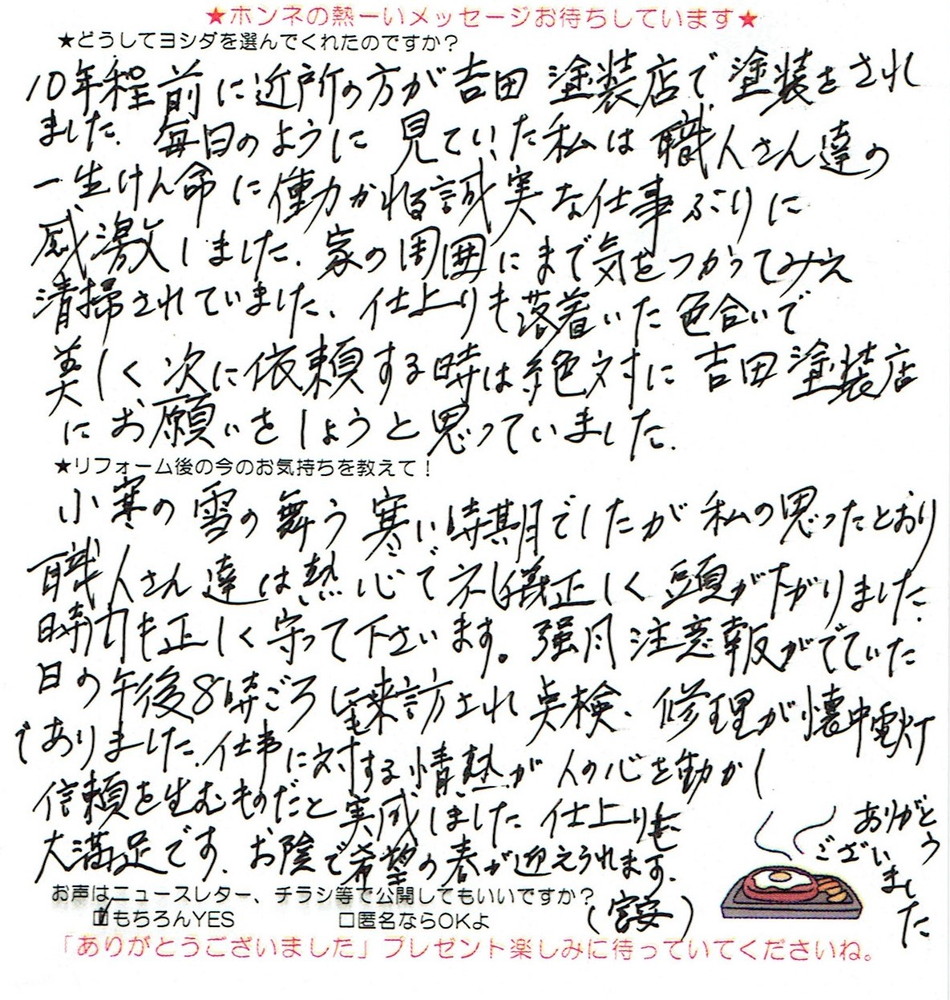 ★ホンネの熱ーいメッセージお待ちしています★
★どうしてヨシダを選んでくれたのですか？
10年程前に近所の方が吉田塗装店で塗装をされ
ました。毎日のように見ていた私は職人さん達の
一生けん命に働かれる誠実な仕事ぶりに
感激しました。家の周囲にまで気をつかってみえ
清掃されていました。仕上りも落着いた色合いで
美しく次に依頼する時は絶対に吉田塗装店
にお願いをしようと思っていました。
★リフォーム後の今のお気持ちを教えて！
小寒の雪の舞う寒い時期でしたが私の思ったとおり
職人さん達は熱心で礼儀正しく頭が下がりました。
時間も正しく守って下さいます。強風注意報がでていた
日の午後8時ごろに来訪され点検、修理が懐中電灯
でありました。仕事に対する情熱が人の心を動かし
信頼を生むものだと実感しました。仕上りも
大満足です。お陰で希望の春が迎えられます。
ありがとう
ございました
お声はニュースレター、チラシ等で公開してもいいですか？
もちろんYES　□匿名ならOKよ
「ありがとうございました」プレゼント楽しみに待っていてくださいね。